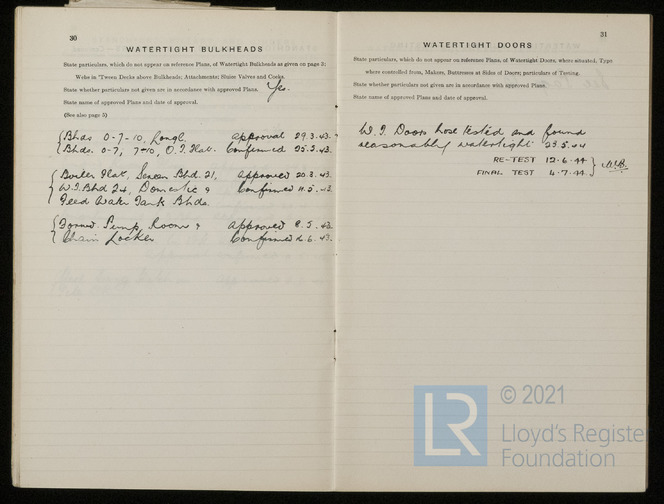 30
WATERTIGHT BULKHEADS
State particulars, which do not appear on reference Plans, of Watertight Bulkheads as given on page 5:
Webs in 'Tween Decks above Bulkheads; Attachments; Sluice Valves and Cocks.
State whether particulars not given are in accordance with approved Plans. Yes.
State name of approved Plans and date of approval.
(See also page 5)
Bhds 0-7-10, Longl. approval 29.3.43.
Bhds. 0-7, 7-10, O.T. Flat. Confirmed 25.3.43.
Boiler Flat, Screen Bhd. 21, approved 20.3.43.
W.T. Bhd 24, Domestic & Confirmed 11.5.43.
Feed Water Tank Bhds.
Forward Pump Room & approved 8.5.43.
Chain Locker Confirmed 16.6.43.
31
WATERTIGHT DOORS
State particulars, which do not appear on reference Plans, of Watertight Doors, where situated, Type
where controlled from, Makers, Buttresses at Sides of Doors; particulars of Testing.
State whether particulars not given are in accordance with approved Plans.
State name of approved Plans and date of approval.
W.T. Doors hose tested and found
reasonably watertight 23.5.44
RE-TEST 12.6.44
FINAL TEST 4.7.44
© 2021
LR
Lloyd's Registe
Foundation